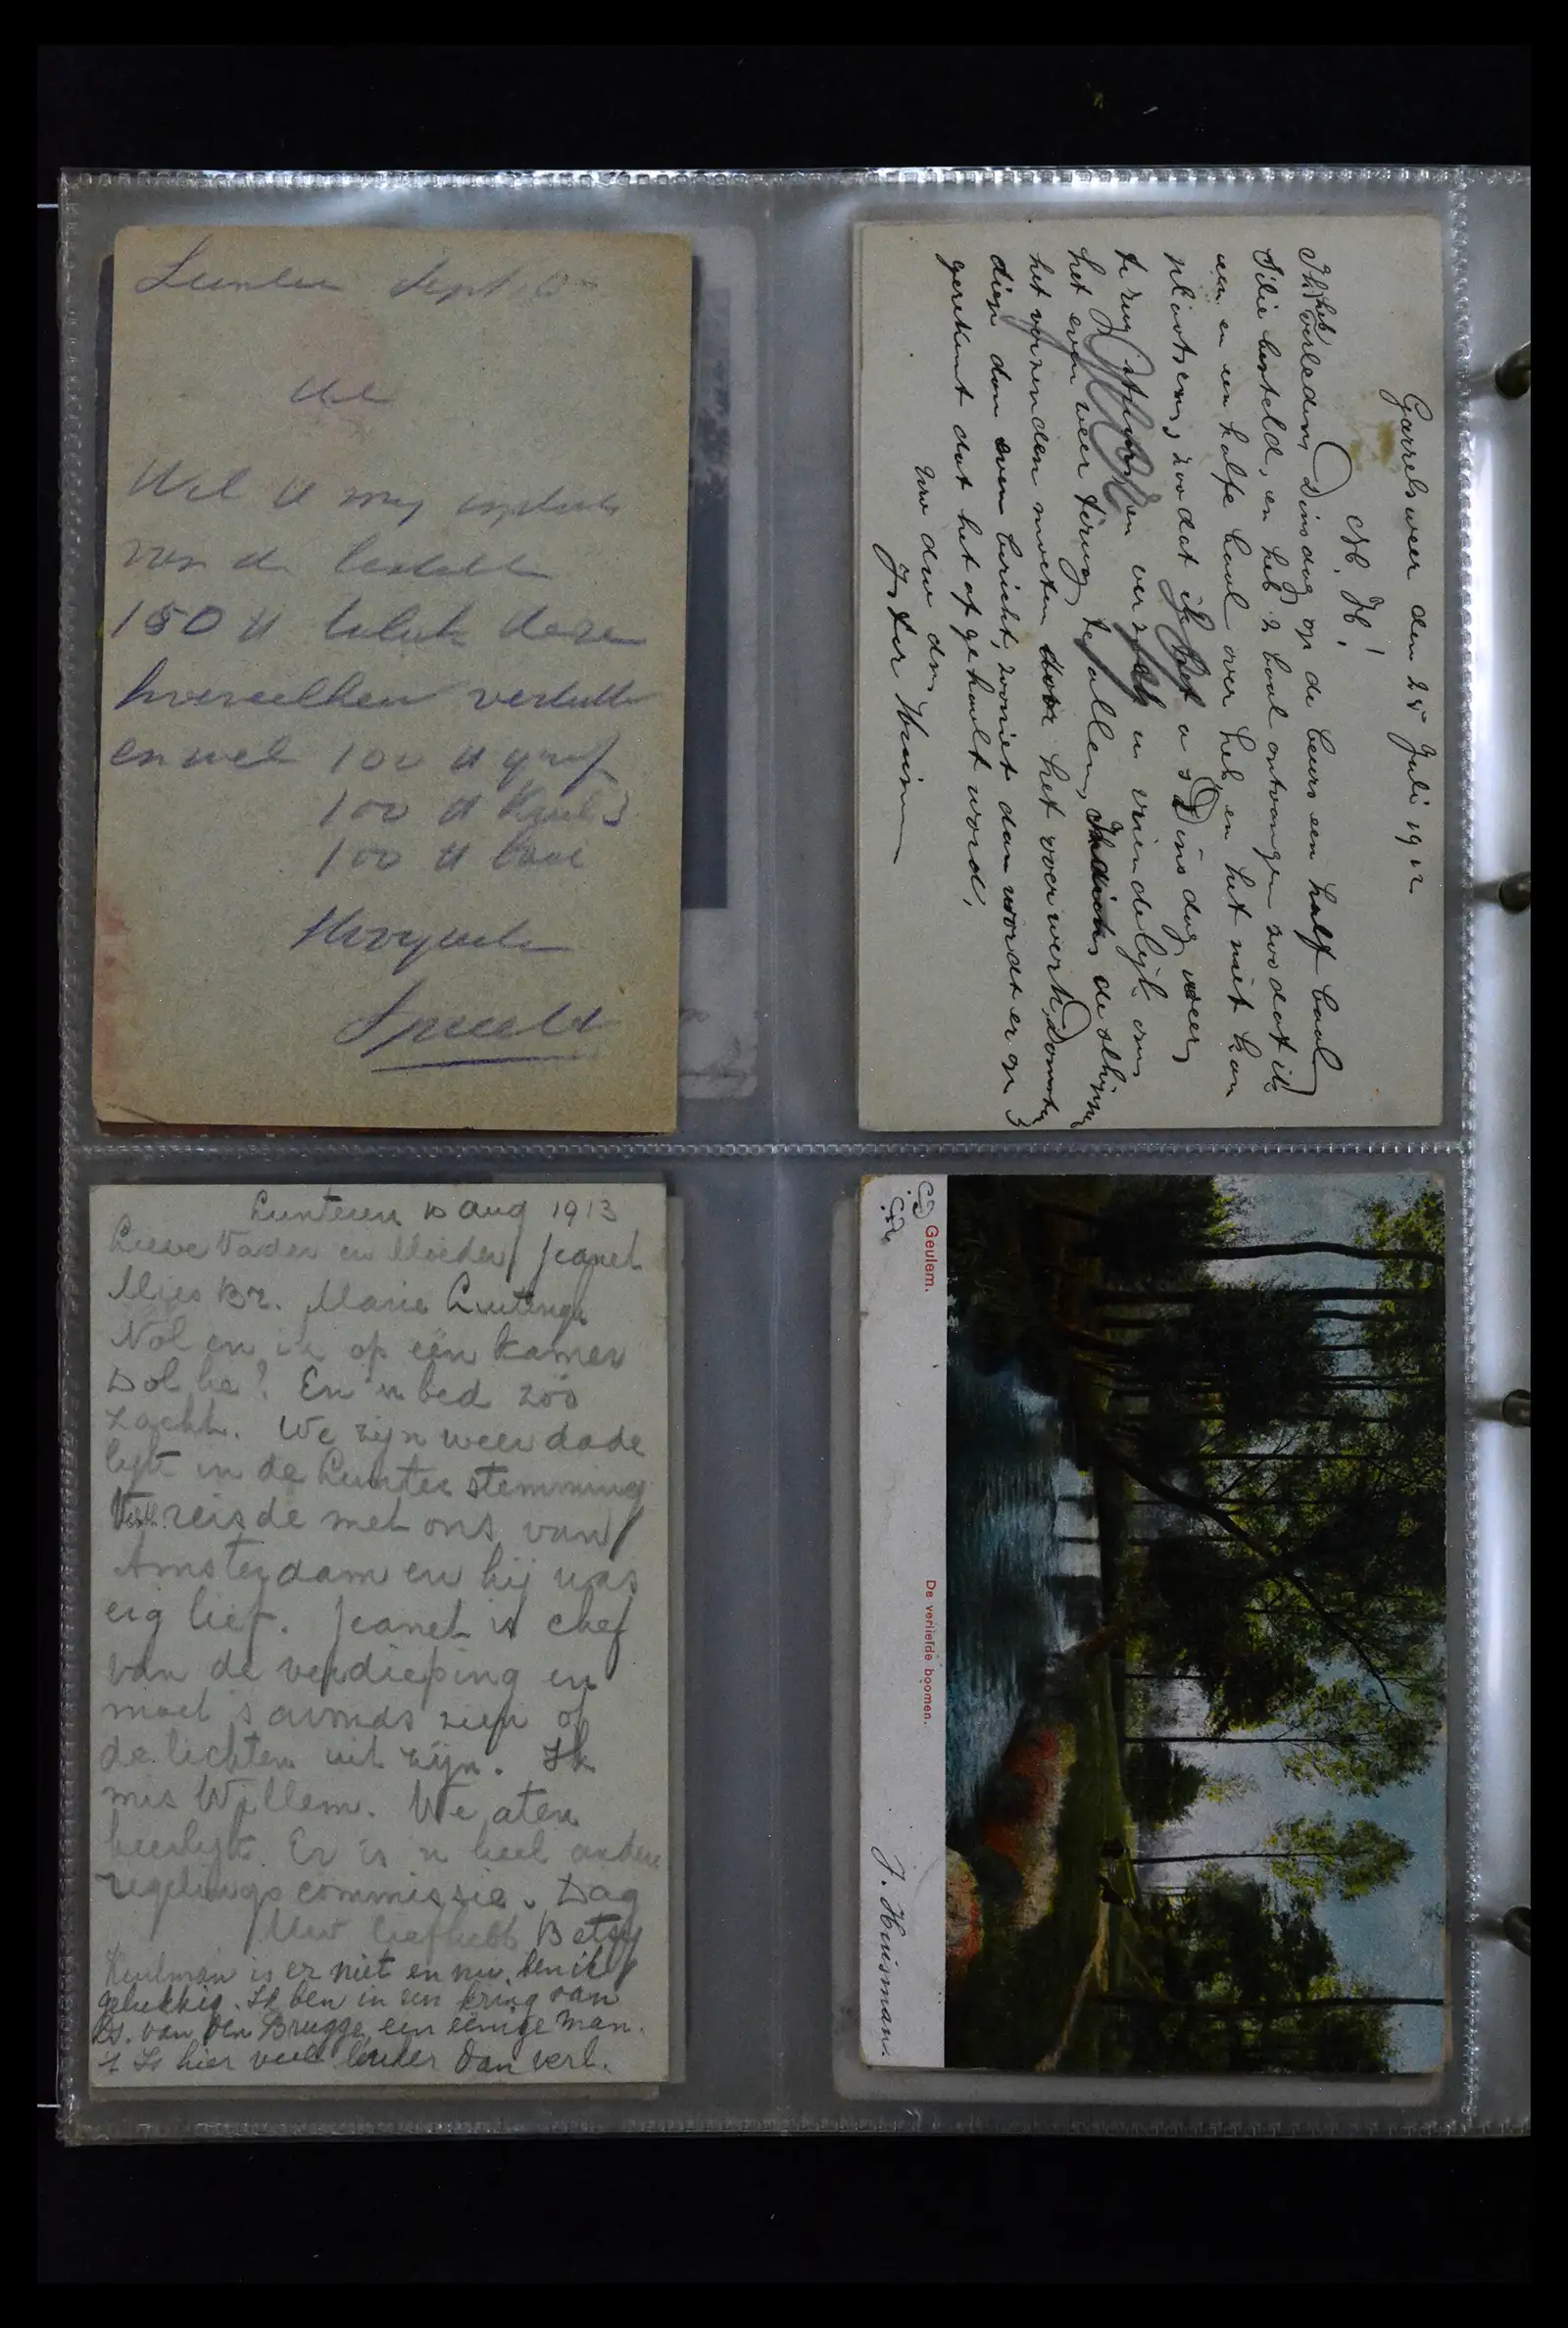 Sept
Wil U my
van de
150 tt deze
hoeveelheden
en wel 100 tt
100 tt
100 tt
Garrelsweer den 25 Juli 1912
M. H!
Ik heb verleden Dinsdag op de beurs een half baal
besteld, en heb 2 baal ontvangen zoodat ik
een en een halfe baal over heb, en het niet kan
plaatsen, zoodat ik het a s Dinsdag weer
terug en verzoek u vriendelijk om
het even weer terug te
het verzenden moeten door het overwerk,
dien dan even bericht, zooniet dan wordt er op
gerekent dat het afgehaalt word,
Uw dw dn,
Lunteren 10 aug 1913
Lieve Vader en Moeder, Jeanet
Mies Br. Marie
Nol en ik op eën kamer
Dol he? En 'n bed zóó
zacht. We zijn weer dade
lijk in de Lunter stemming
reisde met ons van
Amsterdam en hij was
erg lief. Jeanet is chef
van de verdieping en
moet s avonds zien of
de lichten uit zijn. Ik
mis Willem. We aten
heerlijk. Er is 'n heel andere
regelings commissie. Dag
Uw liefhebb Betsy
is er niet en nu ben ik
gelukkig. Ik ben in een kring van
Ds. van den Brugge, een eenige man.
't Is hier veel leuker dan verl.
Geulem.
De verliefde boomen.
J. Huismans